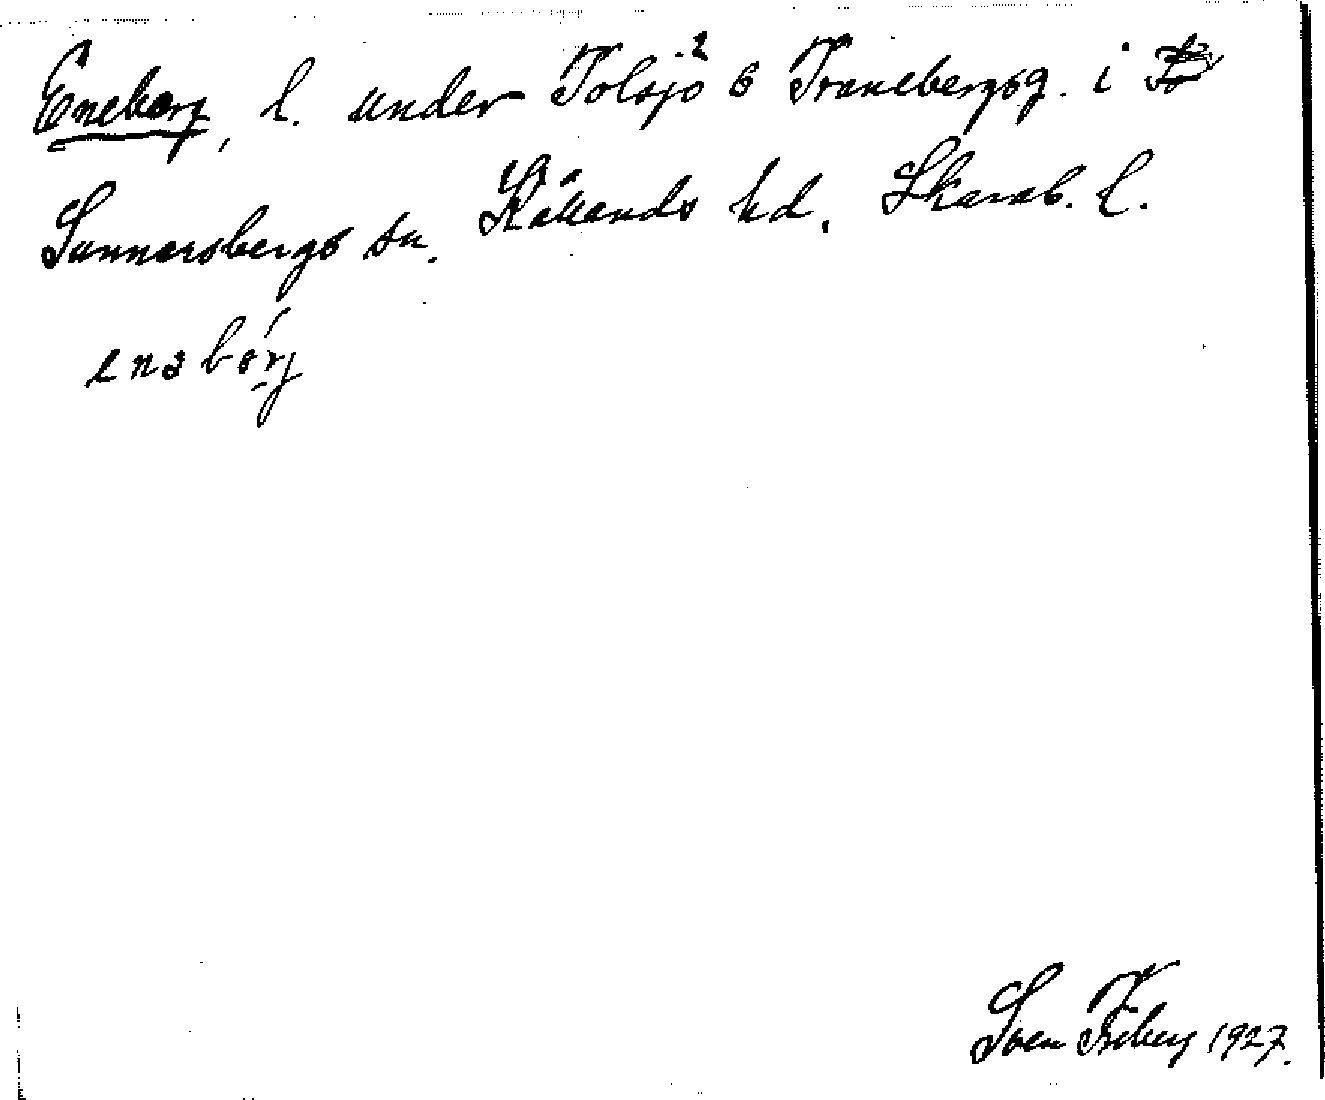 Eneberg, l. under Tolsjö² o Tranebergsg. i
Sunnersbergs sn. Kållands hd. Skarab. l.
Sven Friberg 1927.